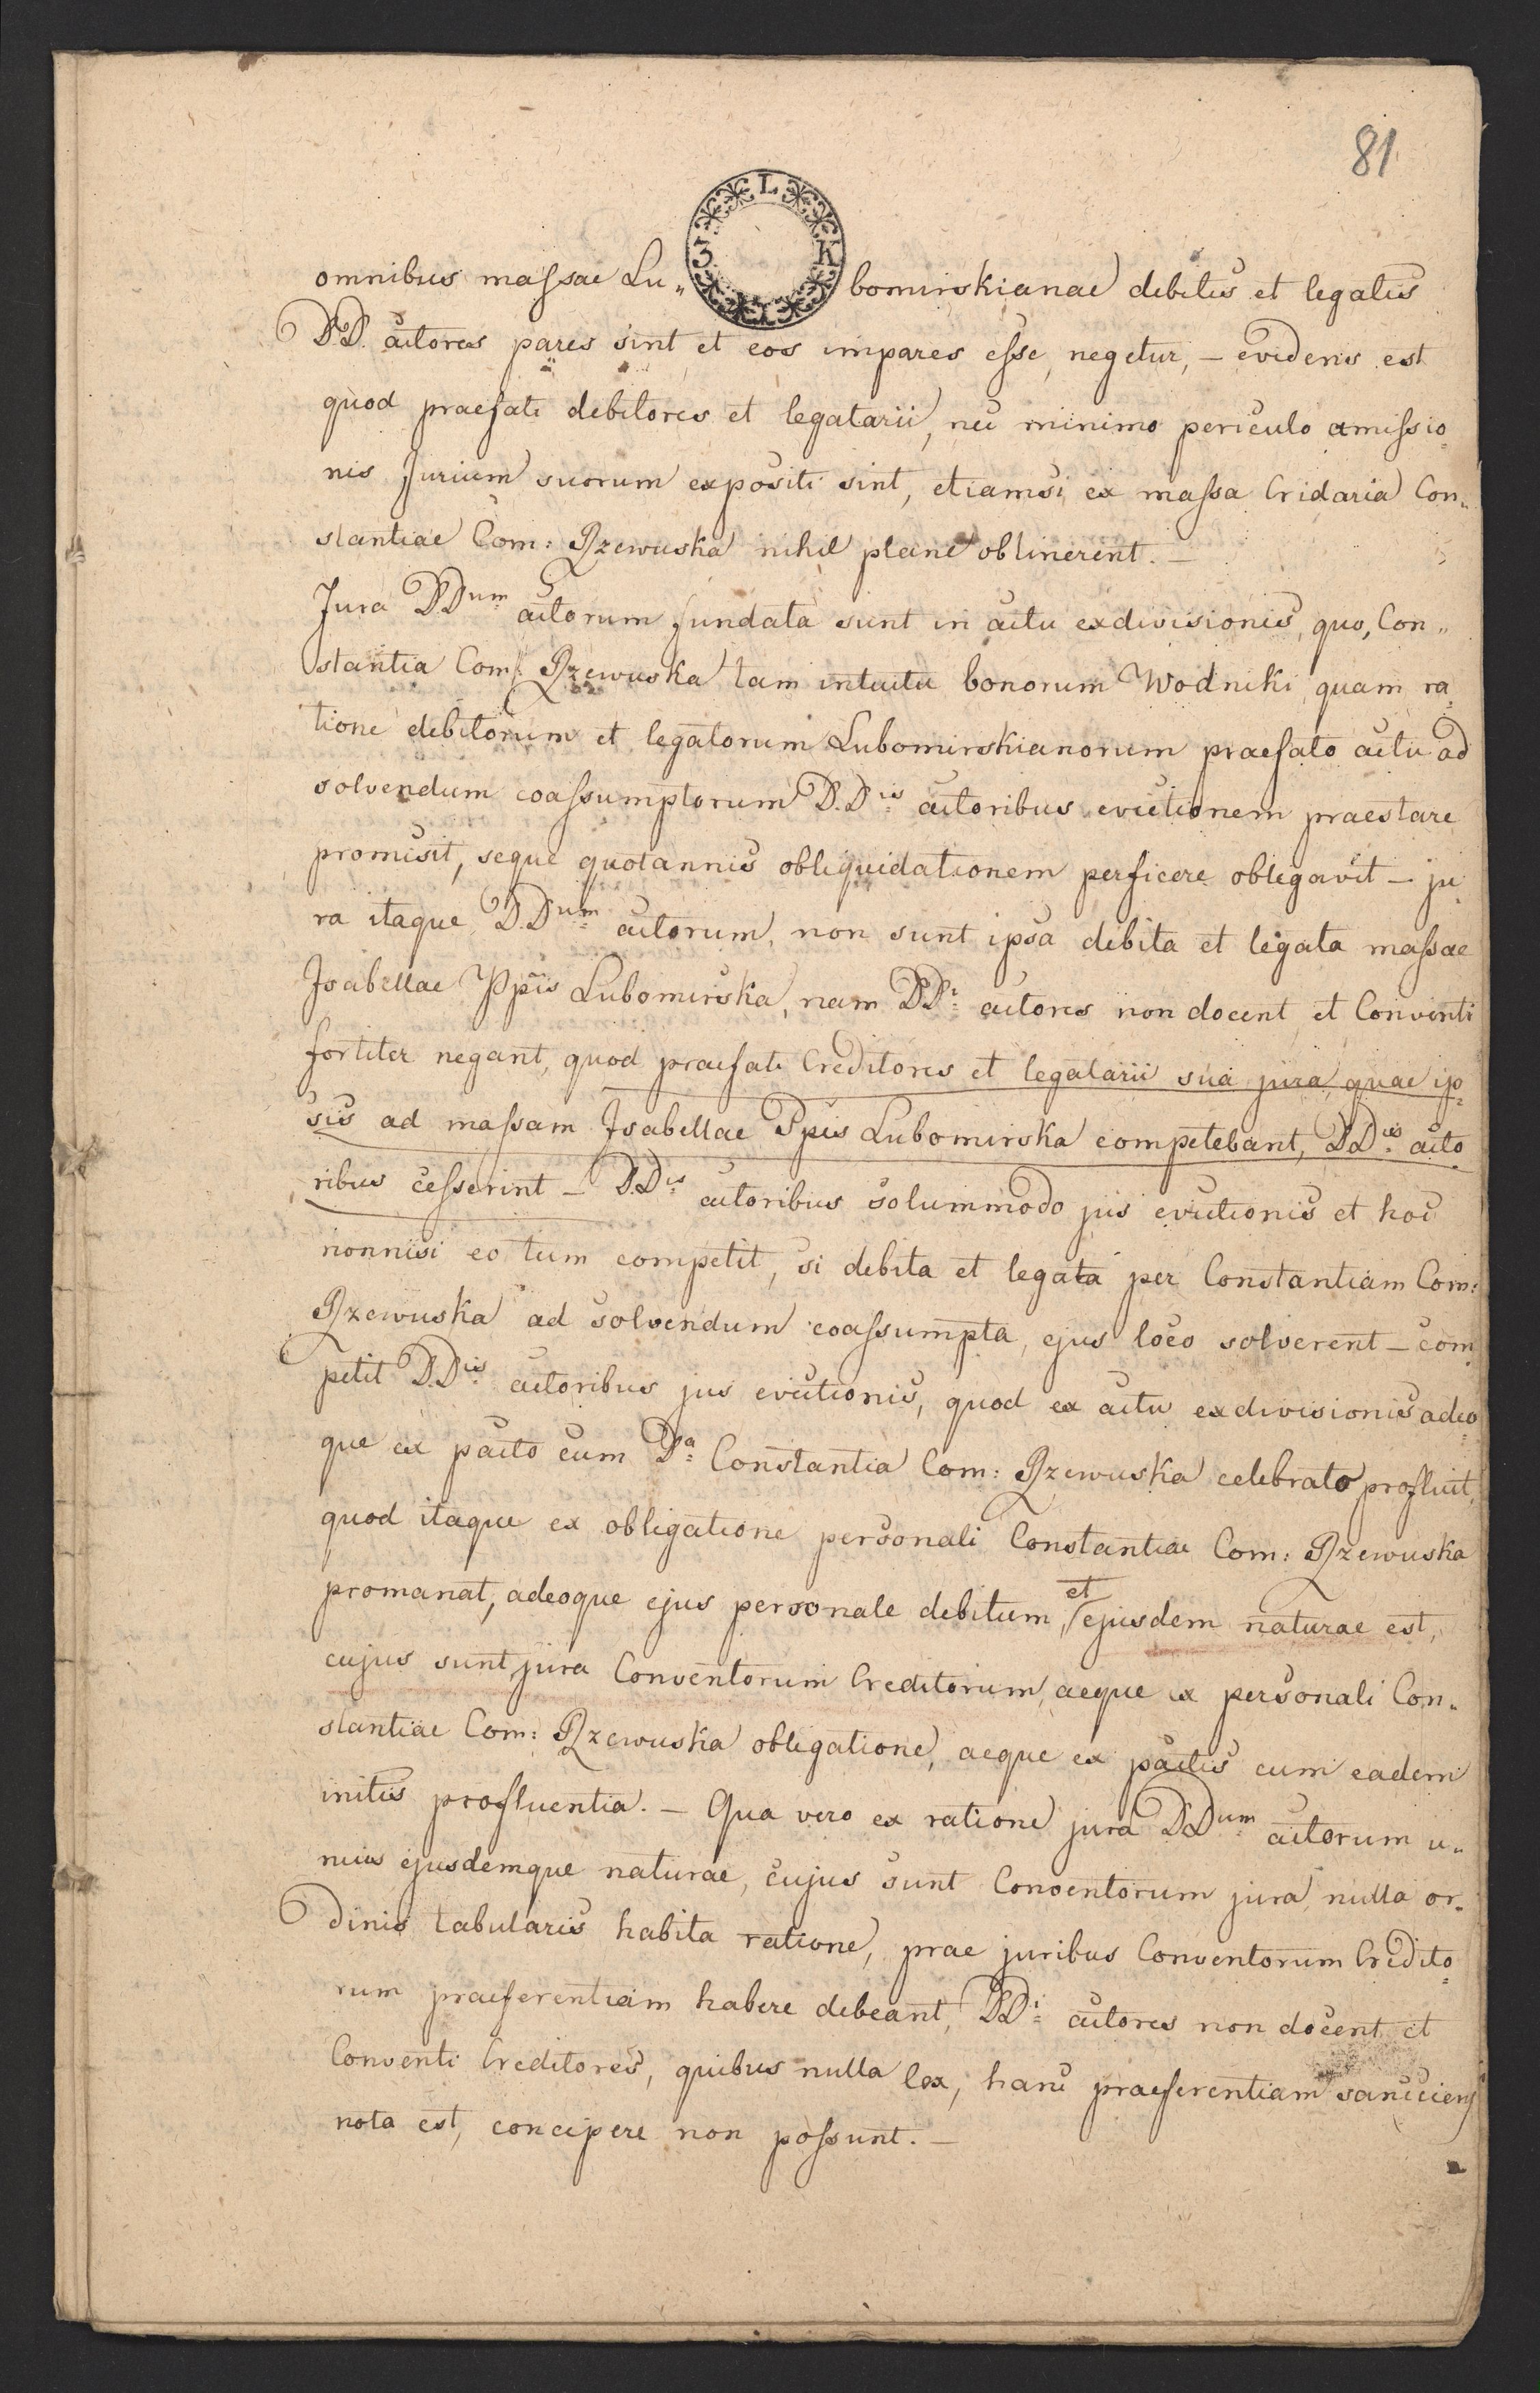 81
L
3 K
omnibus massae Lu„ bomirskianae debitis et legatis
DD. actores pares sint et eos impares esse, negetur, – evidens est
quod praefati debitores et legatarii, nec minimo periculo amissio=
nis Jurium suorum expositi sint, etiamsi ex massa Cridaria Con„
stantiae Com: Rzewuska nihil plane obtinerent. –
Jura DDum actorum fundata sunt in actu exdivisionis, quo, Con„
stantia Com: Rzewuska tam intuitu bonorum Wodniki, quam ra„
tione debitorum et legatorum Lubomirskianorum praefato actu ad
solvendum coassumptorum D.Dis actoribus evictionem praestare
promisit, seque quotannis obliquidationem perficere obligavit – ju„
ra itaque D.Dum actorum, non sunt ipsa debita et legata massae
Isabellae Ppis Lubomirska, nam DDi actores non docent et Conventi
fortiter negant, quod praefati Creditores et legatarii sua jura, quae ip=
sis ad massam Isabellae Ppis Lubomirska competebant, DDis acto
ribus cesserint – D.Dis actoribus solummodo jus evictionis et hoc
nonnisi eo tum competit, si debita et legata per Constantiam Com:
Rzewuska ad solvendum coassumpta, ejus loco solverent – com„
petit D.Dis actoribus jus evictionis, quod ex actu exdivisionis adeo=
que ex pacto cum Da Constantia Com: Rzewuska celebrato profluit,
quod itaque ex obligatione personali Constantiae Com: Rzewuska
promanat, adeoque ejus personale debitum, et ejusdem naturae est,
cujus sunt jura Conventorum Creditorum, aeque ex personali Con„
stantiae Com: Rzewuska obligatione, aeque ex pactis cum eadem
initis profluentia. – Qua vero ex ratione jura DDum actorum u„
nius ejusdemque naturae, cujus sunt Conventorum jura, nulla or„
dinis tabularis habita ratione, prae juribus Conventorum Credito=
rum praeferentiam habere debeant, DDi actores non docent et
Conventi Creditores, quibus nulla lex, hanc praeferentiam sanciens
nota est, concipere non possunt. –